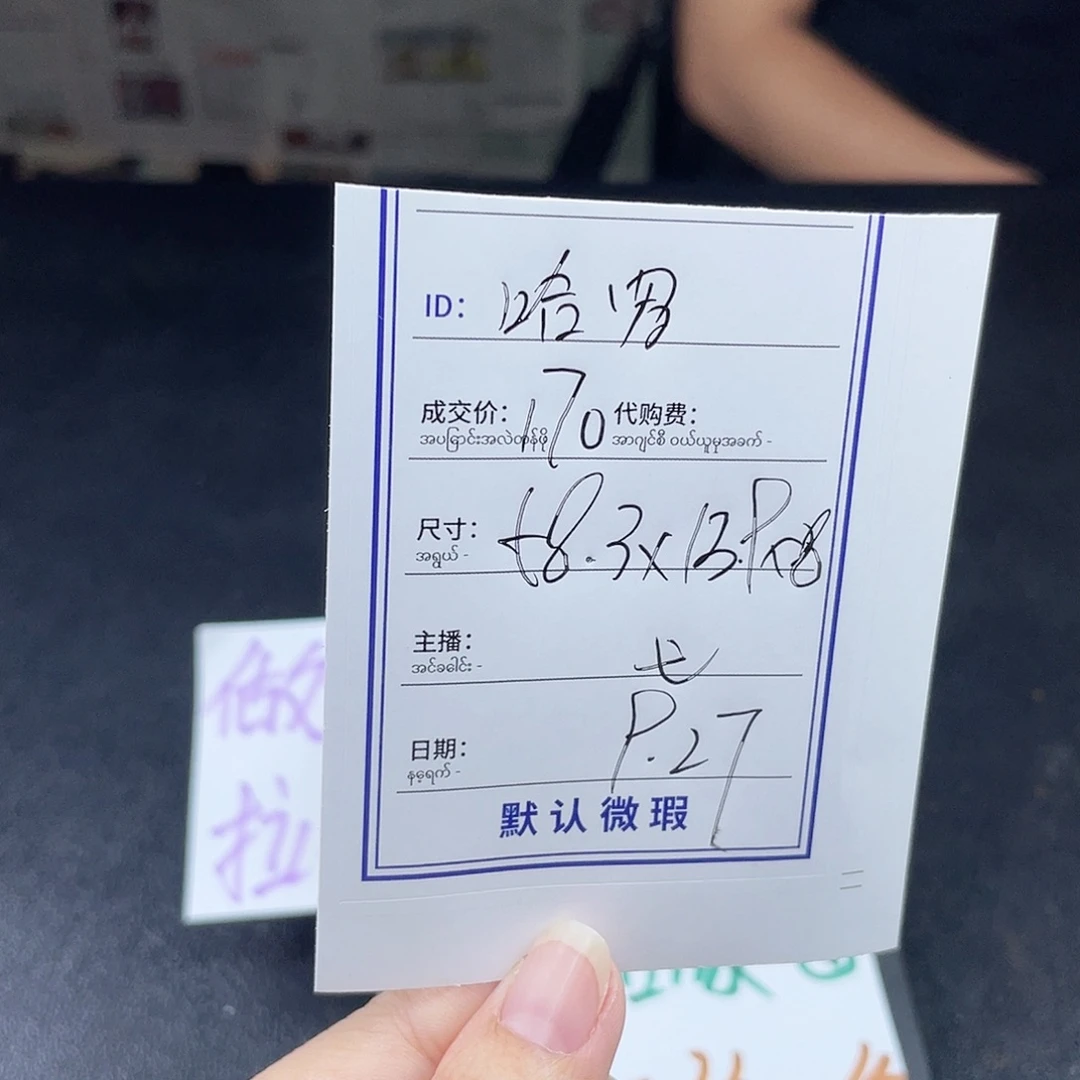 ID: 哈男
成交价: 170 代购费:
အပြောင်းအလဲတန်ဖိုး အာဂျင်စီ ဝယ်ယူမှုအခက် -
尺寸: 58.3x13.9x8
အရွယ် -
主播: 七
အင်ခေါင်း -
日期: 9.27
နေ့ရက် -
默认微瑕
做
拉